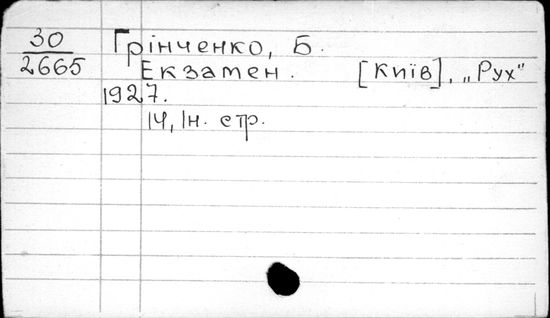 30
2665
Грінченко, Б.
Екзамен. [Київ], „Рух"
1927.
14, 1н. стр.